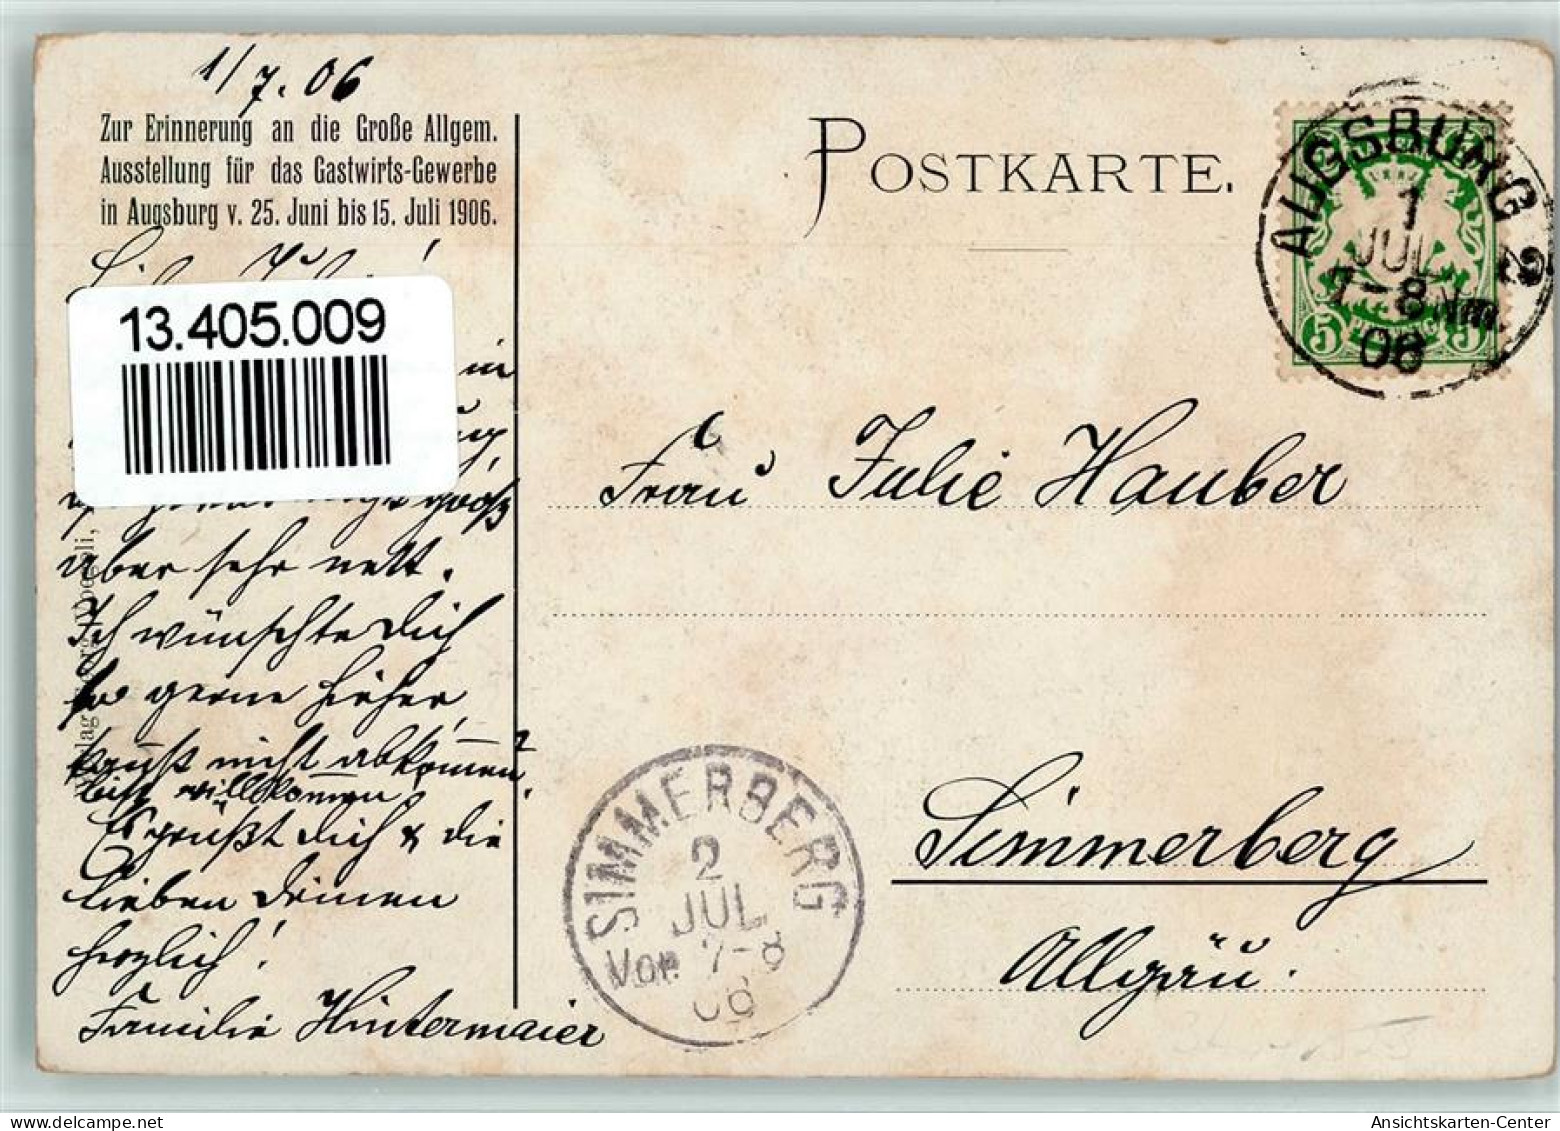 1/7.06
Zur Erinnerung an die Große Allgem.
Ausstellung für das Gastwirts-Gewerbe
in Augsburg v. 25. Juni bis 15. Juli 1906.
POSTKARTE.
AUGSBURG 2
1
JUL
7-8 Nm.
06
5 5
13.405.009
in
groß
aber sehr nett.
Ich wünschte Dich
so gerne hierher,
kannst nicht abkommen?
bist willkommen.
Es grüßt Dich & die
lieben Deinen
herzlich!
Familie Hintermaier
Frau Julie Hauber
Simmerberg
Allgäu.
SIMMERBERG
2
JUL
Vor. 7-8
06
Ansichtskarten-Center